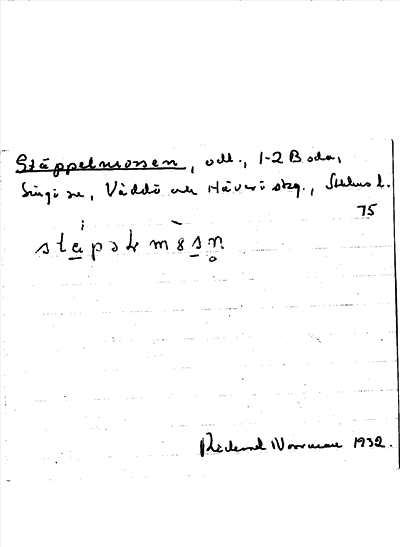 Stäppelmossen, odl., 1-2 Boda,
Singö sn, Väddö och Häverö skg., Sthlms l.
75
stäpəl mösn̥
Rickard Norrman 1932.